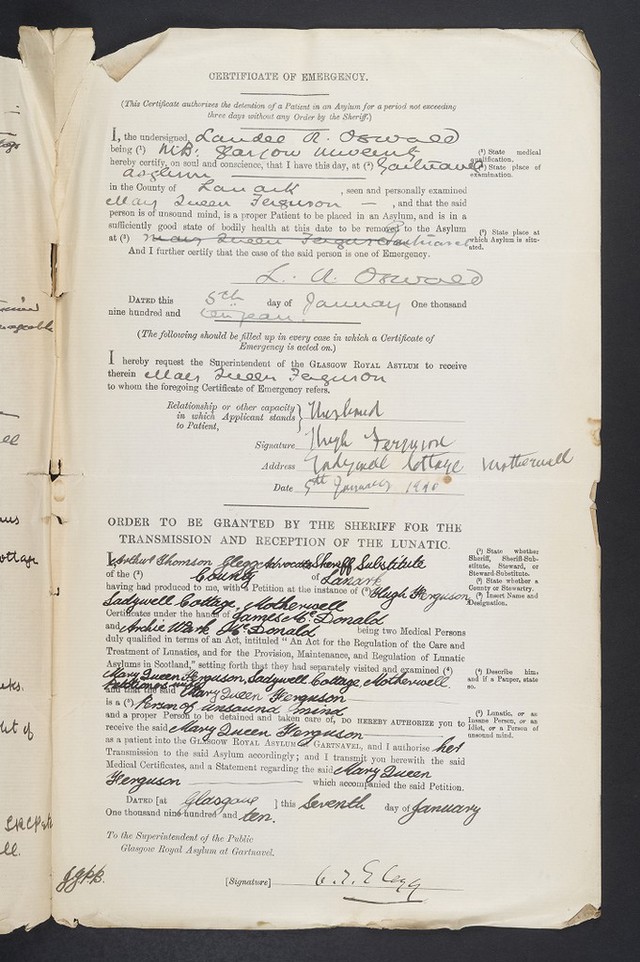 CERTIFICATE OF EMERGENCY.
(This Certificate authorizes the detention of a Patient in an Asylum for a period not exceeding
three days without any Order by the Sheriff.)
I, the undersigned, Landel R. Oswald
being (¹) M.B. Glasgow University
hereby certify, on soul and conscience, that I have this day, at (²) Gartnavel
Asylum
in the County of Lanark, seen and personally examined
Mary Queen Ferguson —, and that the said
person is of unsound mind, is a proper Patient to be placed in an Asylum, and is in a
sufficiently good state of bodily health at this date to be removed to the Asylum
at (³) Mary Queen Ferguson Gartnavel
And I further certify that the case of the said person is one of Emergency.
(¹) State medical
qualification.
(²) State place of
examination.
(³) State place at
which Asylum is situ-
ated.
L. R. Oswald
DATED this 5th day of January One thousand
nine hundred and ten
(The following should be filled up in every case in which a Certificate of
Emergency is acted on.)
I hereby request the Superintendent of the GLASGOW ROYAL ASYLUM to receive
therein Mary Queen Ferguson
to whom the foregoing Certificate of Emergency refers.
Relationship or other capacity
in which Applicant stands
to Patient, } Husband
Signature Hugh Ferguson
Address Ladywell Cottage Motherwell
Date 5th January 1910
ORDER TO BE GRANTED BY THE SHERIFF FOR THE
TRANSMISSION AND RECEPTION OF THE LUNATIC.
I, Arthur Thomson Glegg Advocate Sheriff Substitute
of the (²) County of Lanark
having had produced to me, with a Petition at the instance of (³) Hugh Ferguson,
Sadywell Cottage, Motherwell
Certificates under the hands of James McDonald
and Archie Wark McDonald being two Medical Persons
duly qualified in terms of an Act, intituled "An Act for the Regulation of the Care and
Treatment of Lunatics, and for the Provision, Maintenance, and Regulation of Lunatic
Asylums in Scotland," setting forth that they had separately visited and examined (⁴)
Mary Queen Ferguson, Sadywell Cottage, Motherwell.
and that the said Mary Queen Ferguson
is a (⁵) Person of unsound mind
and a proper Person to be detained and taken care of, DO HEREBY AUTHORIZE you to
receive the said Mary Queen Ferguson
as a patient into the GLASGOW ROYAL ASYLUM, GARTNAVEL, and I authorise her
Transmission to the said Asylum accordingly; and I transmit you herewith the said
Medical Certificates, and a Statement regarding the said Mary Queen
Ferguson which accompanied the said Petition.
(¹) State whether
Sheriff, Sheriff-Sub-
stitute, Steward, or
Steward-Substitute.
(²) State whether a
County or Stewartry.
(³) Insert Name and
Designation.
(⁴) Describe him,
and if a Pauper, state
so.
(⁵) Lunatic, or an
Insane Person, or an
Idiot, or a Person of
unsound mind.
DATED [at Glasgow ] this Seventh day of January
One thousand nine hundred and ten.
To the Superintendent of the Public
Glasgow Royal Asylum at Gartnavel.
[Signature] A. T. Glegg